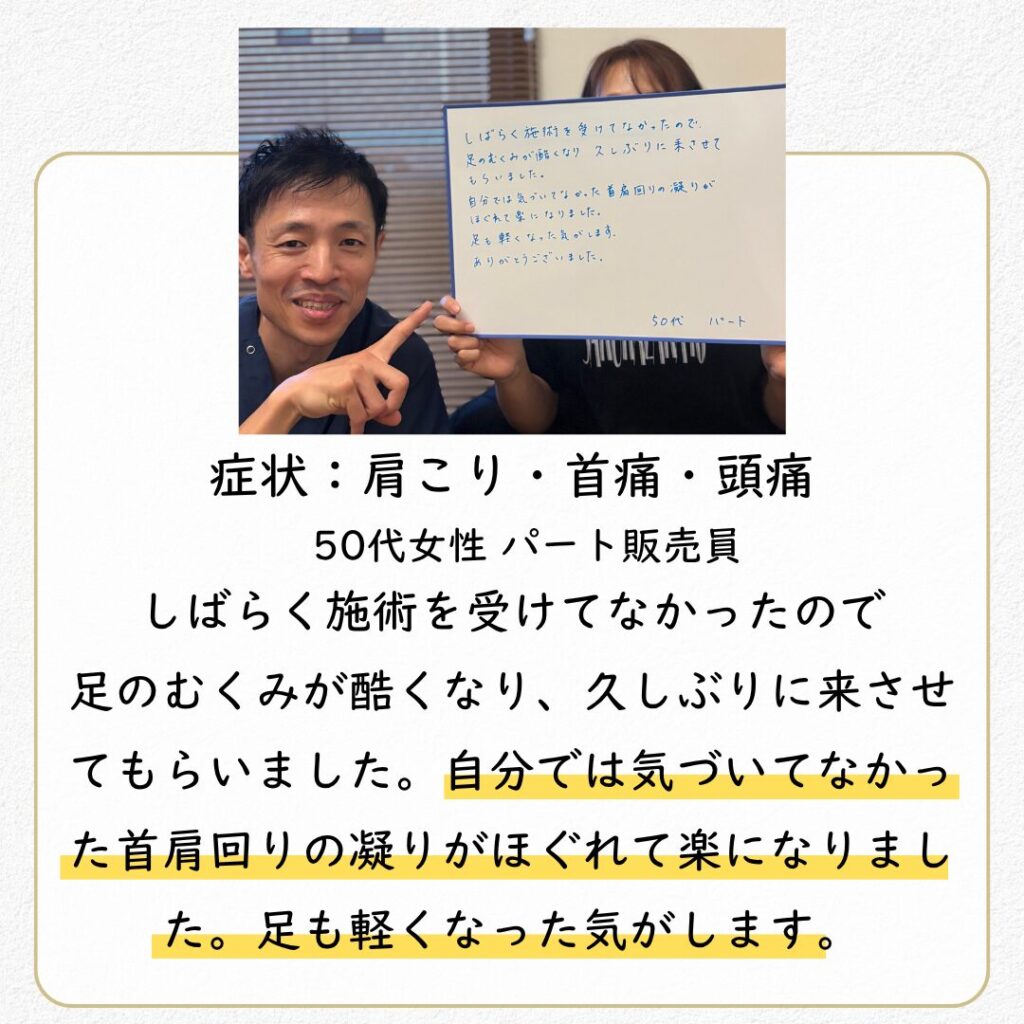 しばらく施術を受けてなかったので、
足のむくみが酷くなり 久しぶりに来させて
もらいました。
自分では気づいてなかった首肩回りの凝りが
ほぐれて楽になりました。
足も軽くなった気がします。
ありがとうございました。
50代 パート
症状：肩こり・首痛・頭痛
50代女性 パート販売員
しばらく施術を受けてなかったので
足のむくみが酷くなり、久しぶりに来させ
てもらいました。自分では気づいてなかっ
た首肩回りの凝りがほぐれて楽になりまし
た。足も軽くなった気がします。